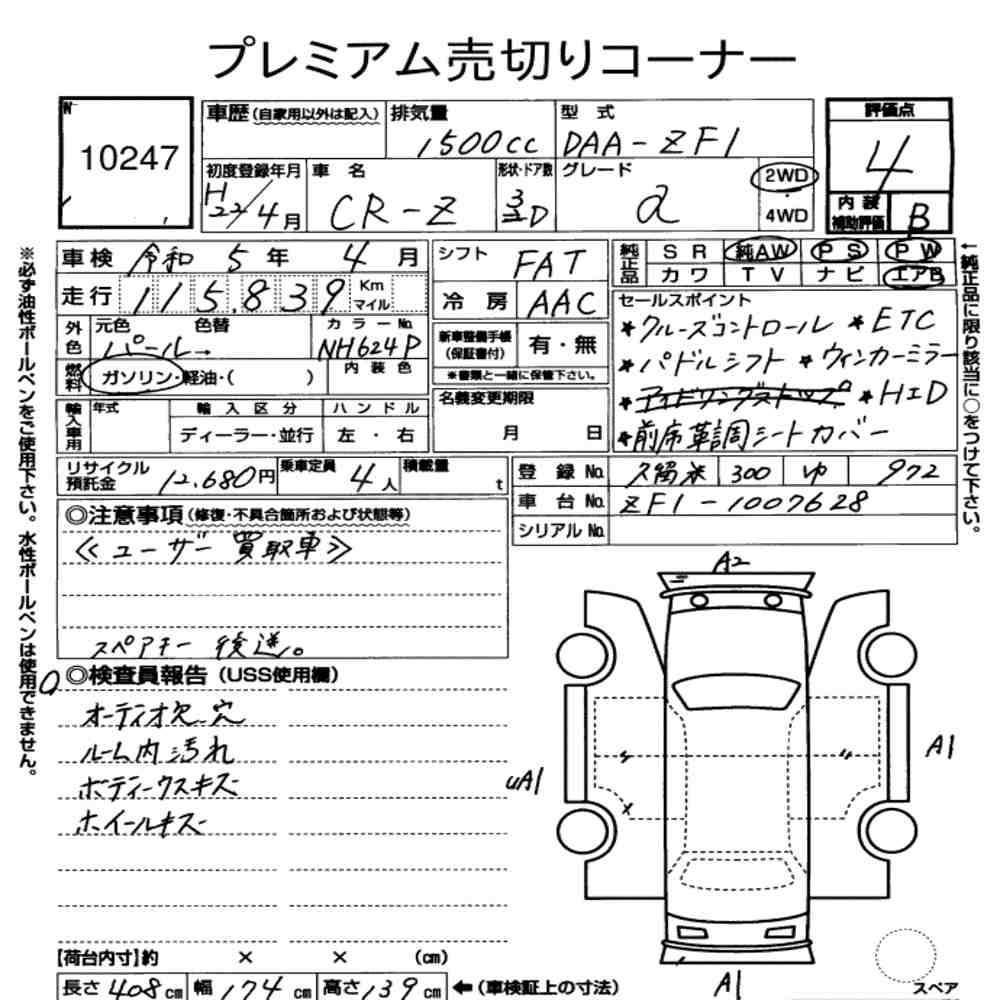 プレミアム売切りコーナー
№
10247
車歴(自家用以外は記入) 排気量 1500cc 型式 DAA-ZF1
初度登録年月 H22/4月 車名 CR-Z 形状・ドア数 3/2D グレード α 2WD 4WD
評価点 4
内装補助評価 B
車検 令和5年4月
走行 115,839 Km マイル
外色 元色 パール 色替 → カラーNo. NH624P
燃料 ガソリン・軽油・( ) 内装色
輸入車用 年式 輸入区分 ディーラー・並行 ハンドル 左・右
シフト FAT
冷房 AAC
新車整備手帳(保証書付) 有・無
※書類と一緒に保管下さい。
名義変更期限 月 日
純正品 SR 純AW PS PW
カワ TV ナビ エアB
セールスポイント
★クルーズコントロール ★ETC
★パドルシフト ★ウィンカーミラー
★アイドリングストップ ★HID
★前席革調シートカバー
←純正品に限り該当に○をつけて下さい。
リサイクル預託金 12,680円 乗車定員 4人 積載量 t
登録No. 久留米 300 ゆ 972
車台No. ZF1-1007628
シリアルNo.
◎注意事項(修復・不具合箇所および状態等)
≪ユーザー買取車≫
スペアキー後送。
◎検査員報告(USS使用欄)
オーディオ欠.穴
ルーム内汚れ
ボディークスキズ
ホイールキズ
※必ず油性ボールペンをご使用下さい。水性ボールペンは使用できません。
A2
A1
UA1
A1
スペア
【荷台内寸】約 × × (cm)
長さ 408cm 幅 174cm 高さ 139cm ←(車検証上の寸法)